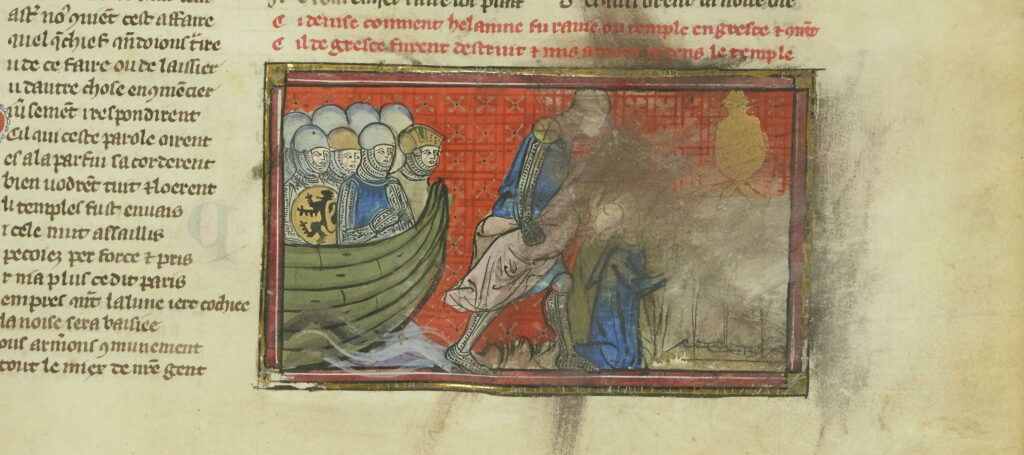 cest affaire
quel chief
u de ce faire ou de laissier
u dautre chose en9mēcier
respondirent
Cil qui ceste parole oirent
es a la parfin sacorderent
bien uodrēt tuit & loerent
li temples fust enuais
i cele nuit assaillis
pecoiez per force & pris
ma plus cedit paris
empres la lune iere cochiee
la noise sera baisiee
ous armons 9munement
tout le miex de nr̄e gent
C i deuise coment helainne fu rauie ou temple en gresce &
C il de gresce furent destruit & mis a mort dedens le temple